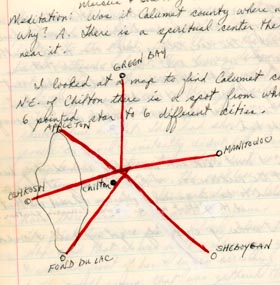 Meditation: Was it Calumet county where
why? A. there is a spiritual center the
near it.
I looked at a map to find Calumet c
N.E. of Chilton there is a spot from wh
6 pointed star to 6 different cities.
GREEN BAY
APPLETON
MANITOWOC
OSHKOSH
Chilton
FOND DU LAC
SHEBOYGAN